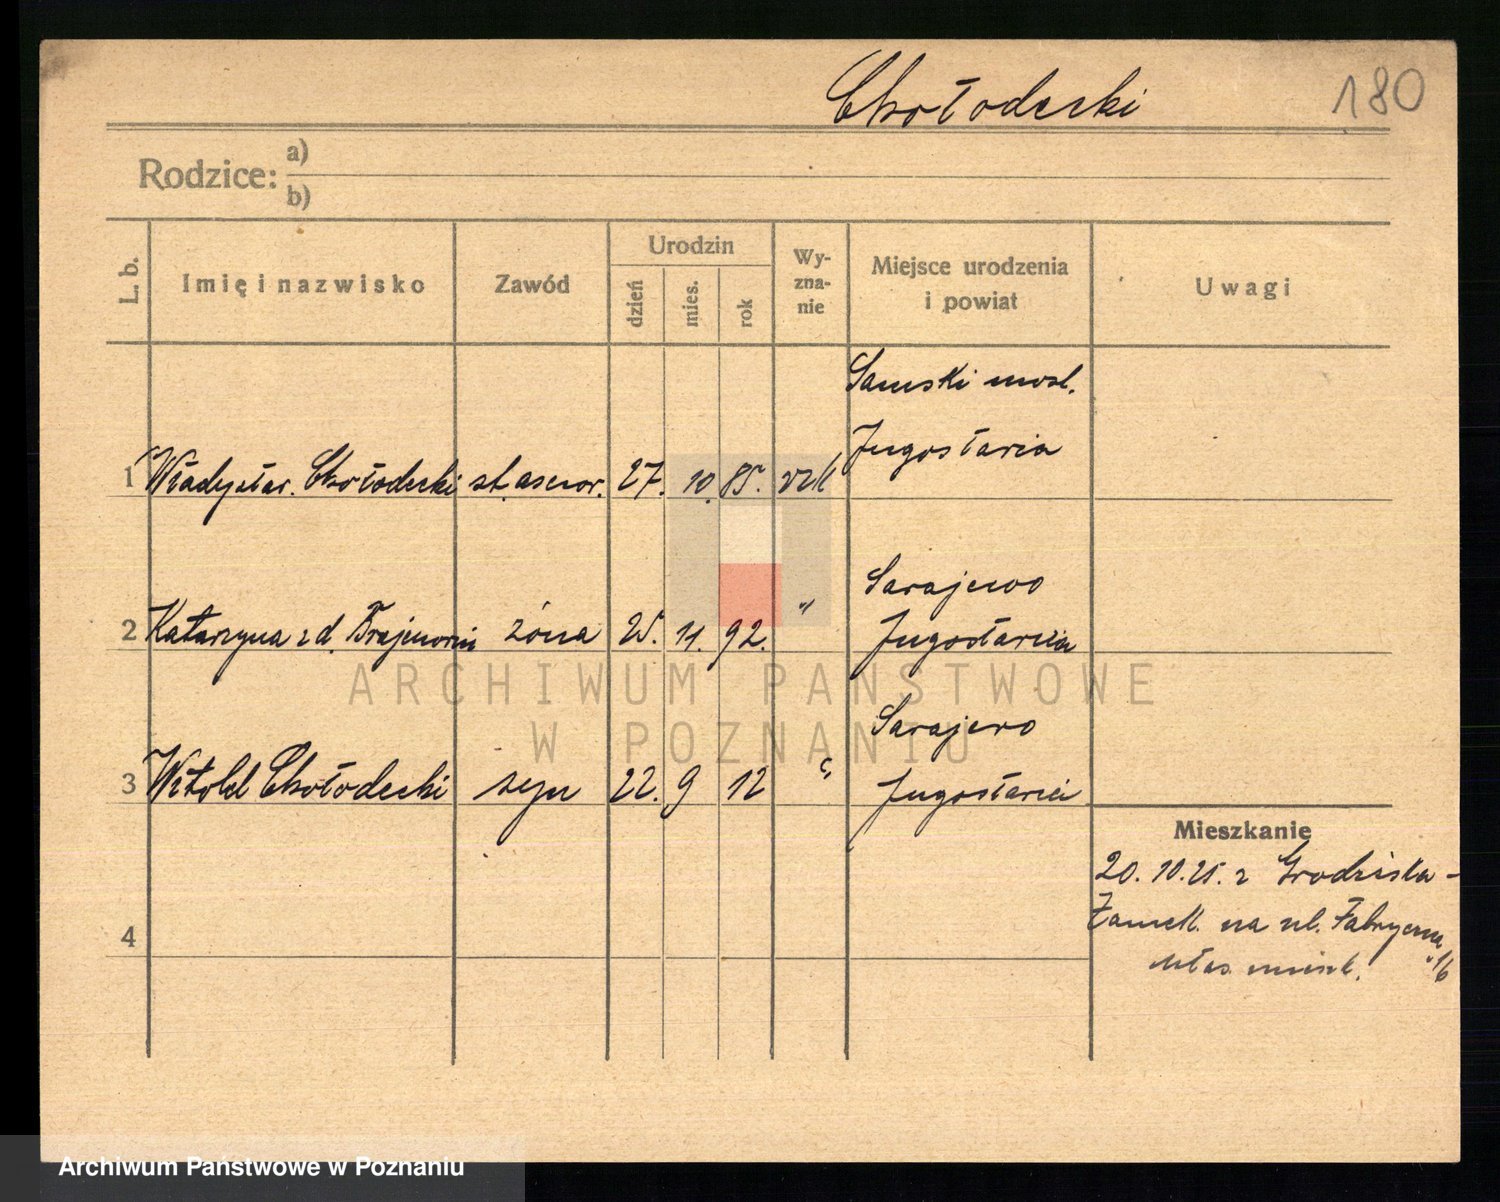 Chołodecki 180
Rodzice: a)
b)
L. b. Imię i nazwisko Zawód Urodzin dzień mies. rok Wy-zna-nie Miejsce urodzenia i powiat Uwagi
Sanski most.
Jugosławia
1 Władysław. Chołodecki st. asesor. 27. 10. 85. rzk
Sarajewo
2 Katarzyna z d. żona 25. 11. 92. " Jugosławia
Sarajewo
3 Witold Chołodecki syn 22. 9 12 " Jugosławia
Mieszkanie
20. 10. 25. z Grodziska -
4 Zamek. na ul. Fabryczna 16
włas. mieszk.
ARCHIWUM PAŃSTWOWE
W POZNANIU
Archiwum Państwowe w Poznaniu